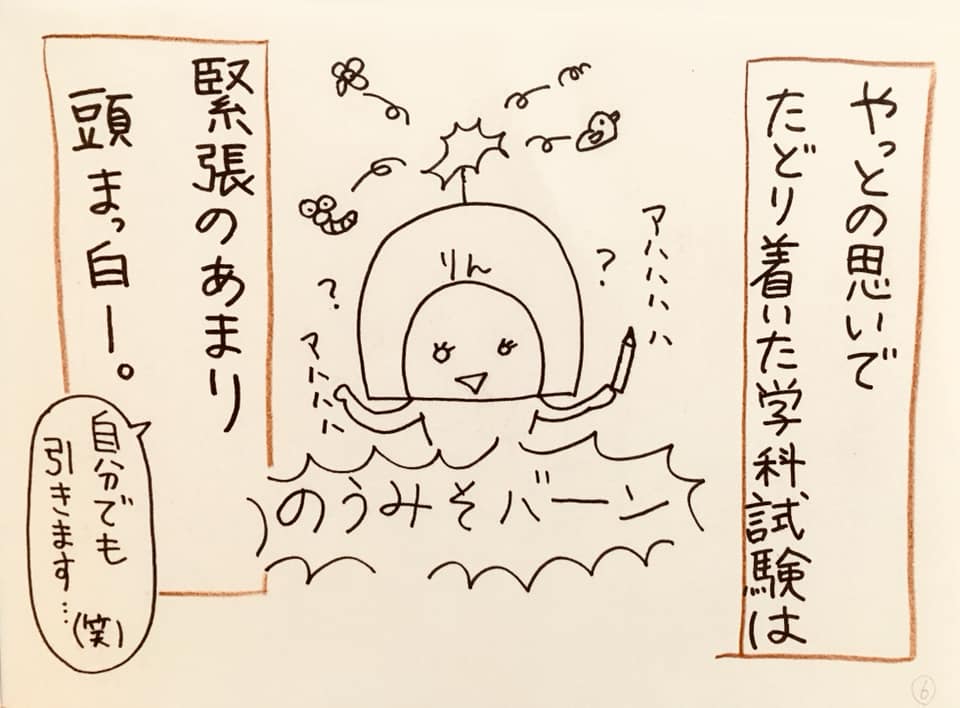 やっとの思いで
たどり着いた学科試験は
アハハハハ
?
りん
?
アハハハハ
のうみそバーン
緊張のあまり
頭まっ白ー。
自分でも
引きます…(笑)
6